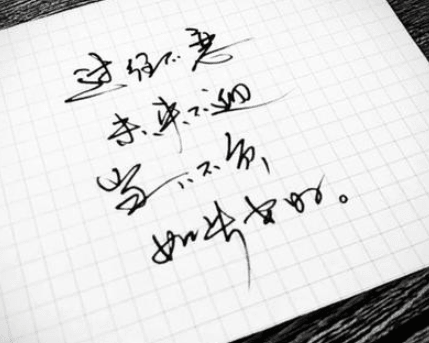 过往不恋
未来不迎
当下不负,
如此安好。